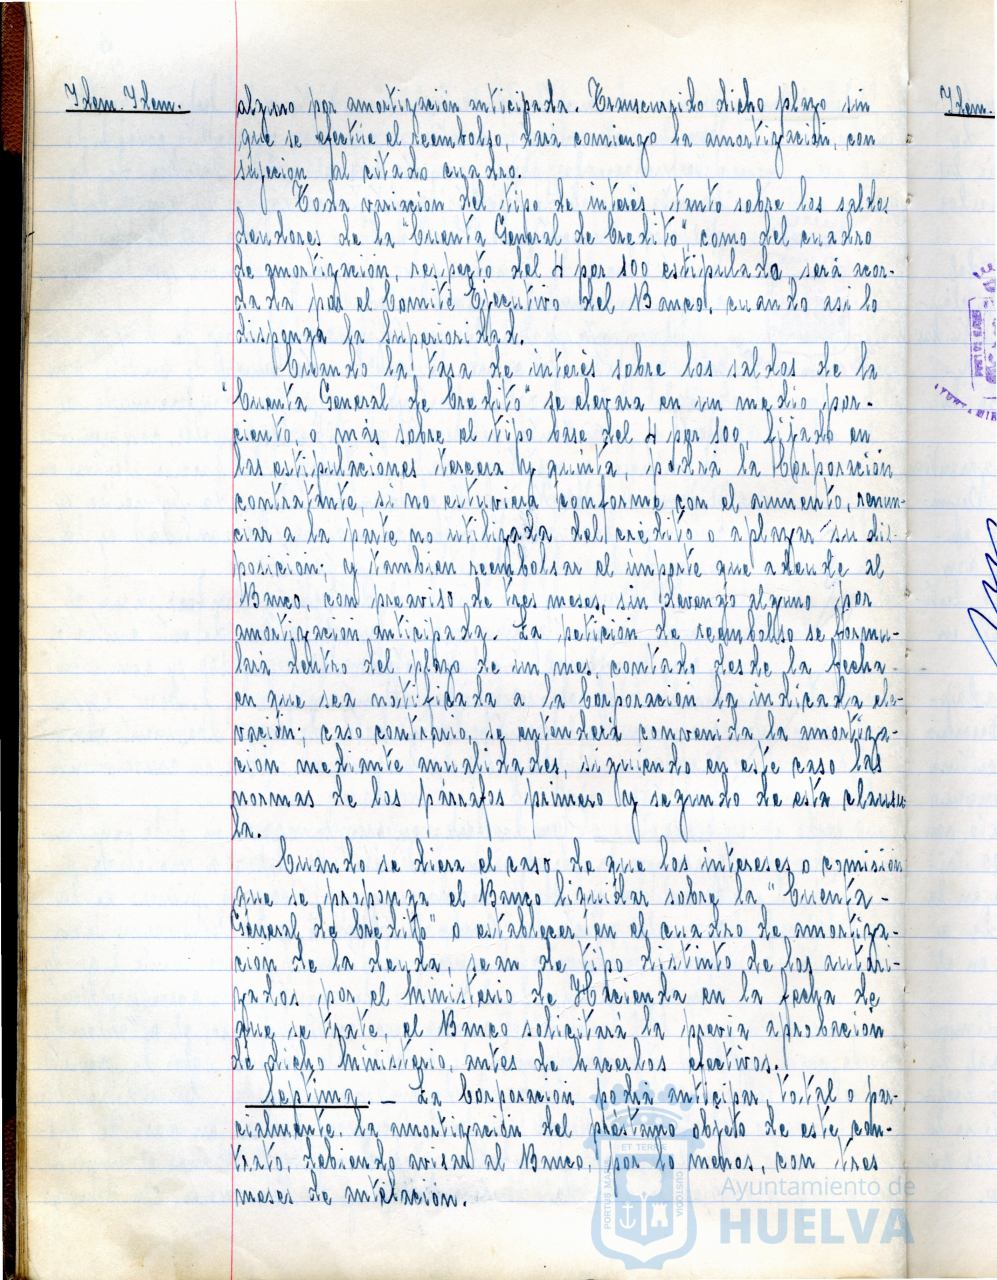 Idem. Idem.
alguno por amortización anticipada. Transcurrido dicho plazo sin
que se efectúe el reembolso, dará comienzo la amortización, con
sujeción al citado cuadro.
Toda variación del tipo de interés, tanto sobre los saldos
deudores de la "Cuenta General de Crédito", como del cuadro
de amortización, respecto del 4 por 100 estipulado, será acor-
dada por el Comité Ejecutivo del Banco, cuando así lo
disponga la Superioridad.
Cuando la tasa de interés sobre los saldos de la
"Cuenta General de Crédito" se elevara en un medio por-
ciento, o más sobre el tipo base del 4 por 100, fijado en
las estipulaciones tercera y quinta, podrá la Corporación
contratante, si no estuviera conforme con el aumento, renun-
ciar a la parte no utilizada del crédito o aplazar su dis-
posición; y también reembolsar el importe que adeude al
Banco, con preaviso de tres meses, sin devengo alguno por
amortización anticipada. La petición de reembolso se formu-
lará dentro del plazo de un mes, contado desde la fecha
en que sea notificada a la Corporación la indicada ele-
vación; caso contrario, se entenderá convenida la amortiza-
ción mediante anualidades, siguiendo en este caso las
normas de los párrafos primero y segundo de esta cláusu-
la.
Cuando se diera el caso de que los intereses o comisión
que se proponga el Banco liquidar sobre la "Cuenta-
General de Crédito" o establecer en el cuadro de amortiza-
ción de la deuda, sean de tipo distinto de los autori-
zados por el Ministerio de Hacienda en la fecha de
que se trate, el Banco solicitará la previa aprobación
de dicho Ministerio, antes de hacerlos efectivos.
Septima. - La Corporación podrá anticipar, total o par-
cialmente. la amortización del préstamo objeto de este con-
trato, debiendo avisar al Banco, por lo menos, con tres
meses de antelación.
Idem.
PORTUS MARIS ET TERRAE CUSTODIA
Ayuntamiento de
HUELVA